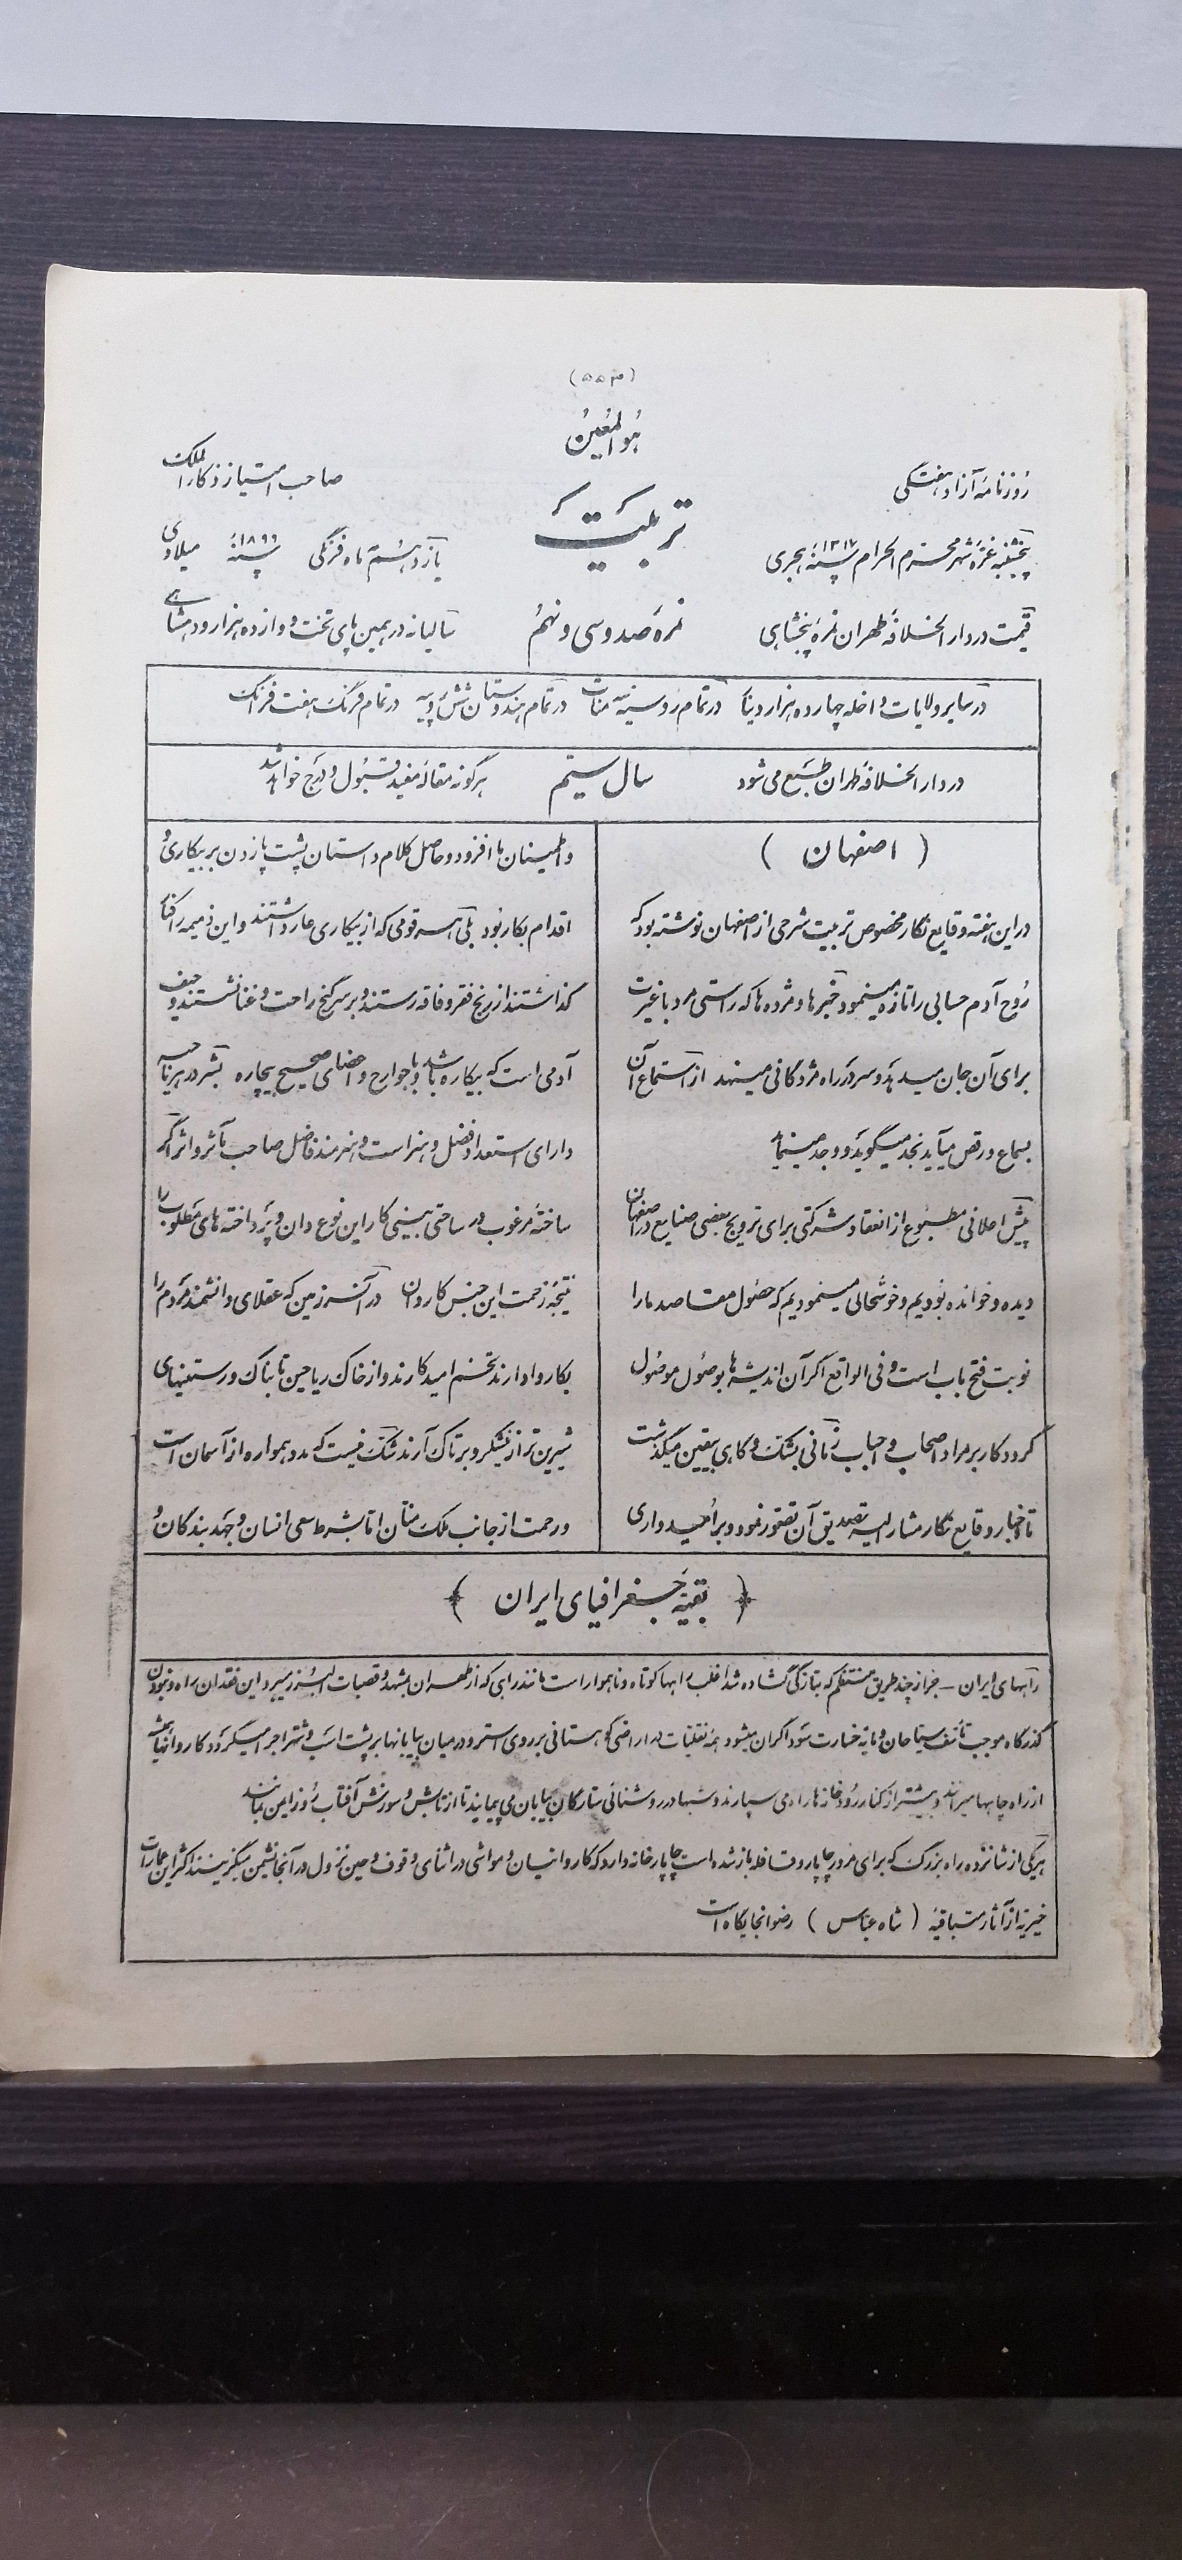 (۵۵۳)
هُوالمُعین
روزنامهٔ آزاد هفتگی
صاحب امتیاز ذکاء الملک
تربیت
پنجشنبه غرّهٔ شهر محرّم الحرام سنهٔ ۱۳۱۷ هجری
یازدهم ماه فرنگی سنهٔ ۱۸۹۹ میلادی
قیمت در دار الخلافهٔ طهران نمرهٔ پنجشاهی
نمرهٔ صد و سی و نهم
سالیانه در همین پای تخت دوازده هزار و دهشاهی
در سایر ولایات داخله چهارده هزار دینار در تمام روسیه سه منات در تمام هندوستان شش روپیه در تمام فرنگ هفت فرانک
در دار الخلافه طهران طبع می شود
سال سیّم
هر گونه مقالهٔ مفید قبول و درج خواهد شد
( اصفهان )
در این هفته وقایع نگار مخصوص تربیت شرحی از اصفهان نوشته بود که
رُوح آدم حسابی را تازه مینمود خبرها و مژده ها که راستی مرد با غیرت
برای آن جان میدهد و سر در راه مژدگانی مینهد از استماع آن
بسماع و رقص میآید نجد میگوید و وجد مینماید
پیش اعلانی مطبوع از انعقاد شرکتی برای ترویج بعضی صنایع در اصفهان
دیده و خوانده بودیم و خوشحالی مینمودیم که حصول مقاصد ما را
نوبت فتح باب است و فی الواقع اگر آن اندیشه ها بوصول موصُول
گردد کار بر مراد اصحاب و احباب زمانی بشک و گاهی بیقین میگذشت
تا اخبار وقایع نگار مشار الیه تصدیق آن تصوّر نمود و بر امُیدواری
و اطمینان ما افزود و حاصل کلام داستان پشت پا زدن بر بیکاری و
اقدام بکار بود بلی هر قومی که از بیکاری عار داشتند و این ذمیمه را کنار
گذاشتند از رنج فقر و فاقه رستند و بر سر گنج راحت و غنا نشستند و حیف
آدمی است که بیکاره باشد و با جوارح و اعضای صحیح بیچاره بشر در هر ناحیه
دارای استعداد فضل و هنر است و هنرمند فاضل صاحب تأثر و اثر اگر
ساختهٔ مرغوب در ساحتی بینی کار این نوع دان و پرداخته های مطلوب را
نتیجهٔ زحمت این جنس کاروان در آن سرزمین که عقلای دانشمند مردم را
بکار وادارند تخم امید کارند و از خاک ریاحین تابناک و رستنیهای
شیرین تر از نیشکر و بر تاک آرند شک نیست که مدد همواره از آسمان است
و رحمت از جانب ملک منّان امّا بشرط سعی انسان و جهد بندگان و
بقیّهٔ جغرافیای ایران
راههای ایران – جز از چند طریق منتظم که بتازگی گشاده شد اغلب راهها کوتاه و ناهموار است مانند راهی که از طهران بمشهد و قصبات البرز میرود این فقدان راه و نبودن
گذرگاه موجب تأسف سیّاحان و مایهٔ خسارت سوداگران میشود همهٔ نقلیّات در اراضی کوهستانی بر روی استر و در میان بیابانها بر پشت اسب و شتر اجرا میگردد کاروانها همیشه
از راه چاهها میرانند و بیشتر از کنار رودخانه ها راه می سپارند و شبها در روشنائی ستارگان بیابان می پیمایند تا از تابش و سوزش آفتاب روز ایمن بمانند
هر یکی از شانزده راه بزرگ که برای مرور چاپار و قافله باز شده است چاپارخانه دارد که کاروانیان و مواشی در اثنای وقوف و حین نزول در آنجا نشیمن میگزینند اکثر این عمارات
خیریّه از آثار متباقیهٔ ( شاه عبّاس ) رضوانجایگاه است